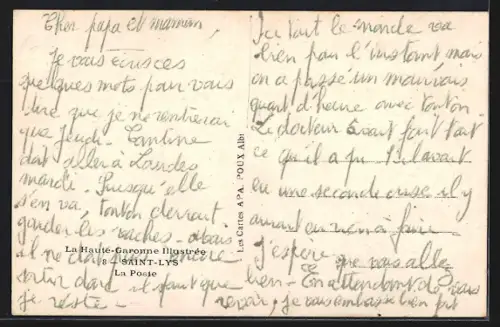 Cher papa et maman,
Je vais ces
quelques mots pour vous
dire que je ne rentrerai
que jeudi. Tantine
doit aller à Lourdes
mardi. Puisqu'elle
s'en va, tonton devrait
garder les vaches. Mais
il ne doit encore
sortir donc il faut que
je reste.
La Haute-Garonne Illustrée
8 - SAINT-LYS
La Poste
Les Cartes APA. POUX Albi
Ici tout le monde va
bien pour l'instant mais
on a passé un mauvais
quart d'heure avec tonton.
Le docteur avait fait tout
ce qu'il a pu. S'il avait
eu une seconde crise il y
aurait eu rien à faire
J'espère que vous allez
bien. En attendant de vous
revoir, je vous embrasse bien fort